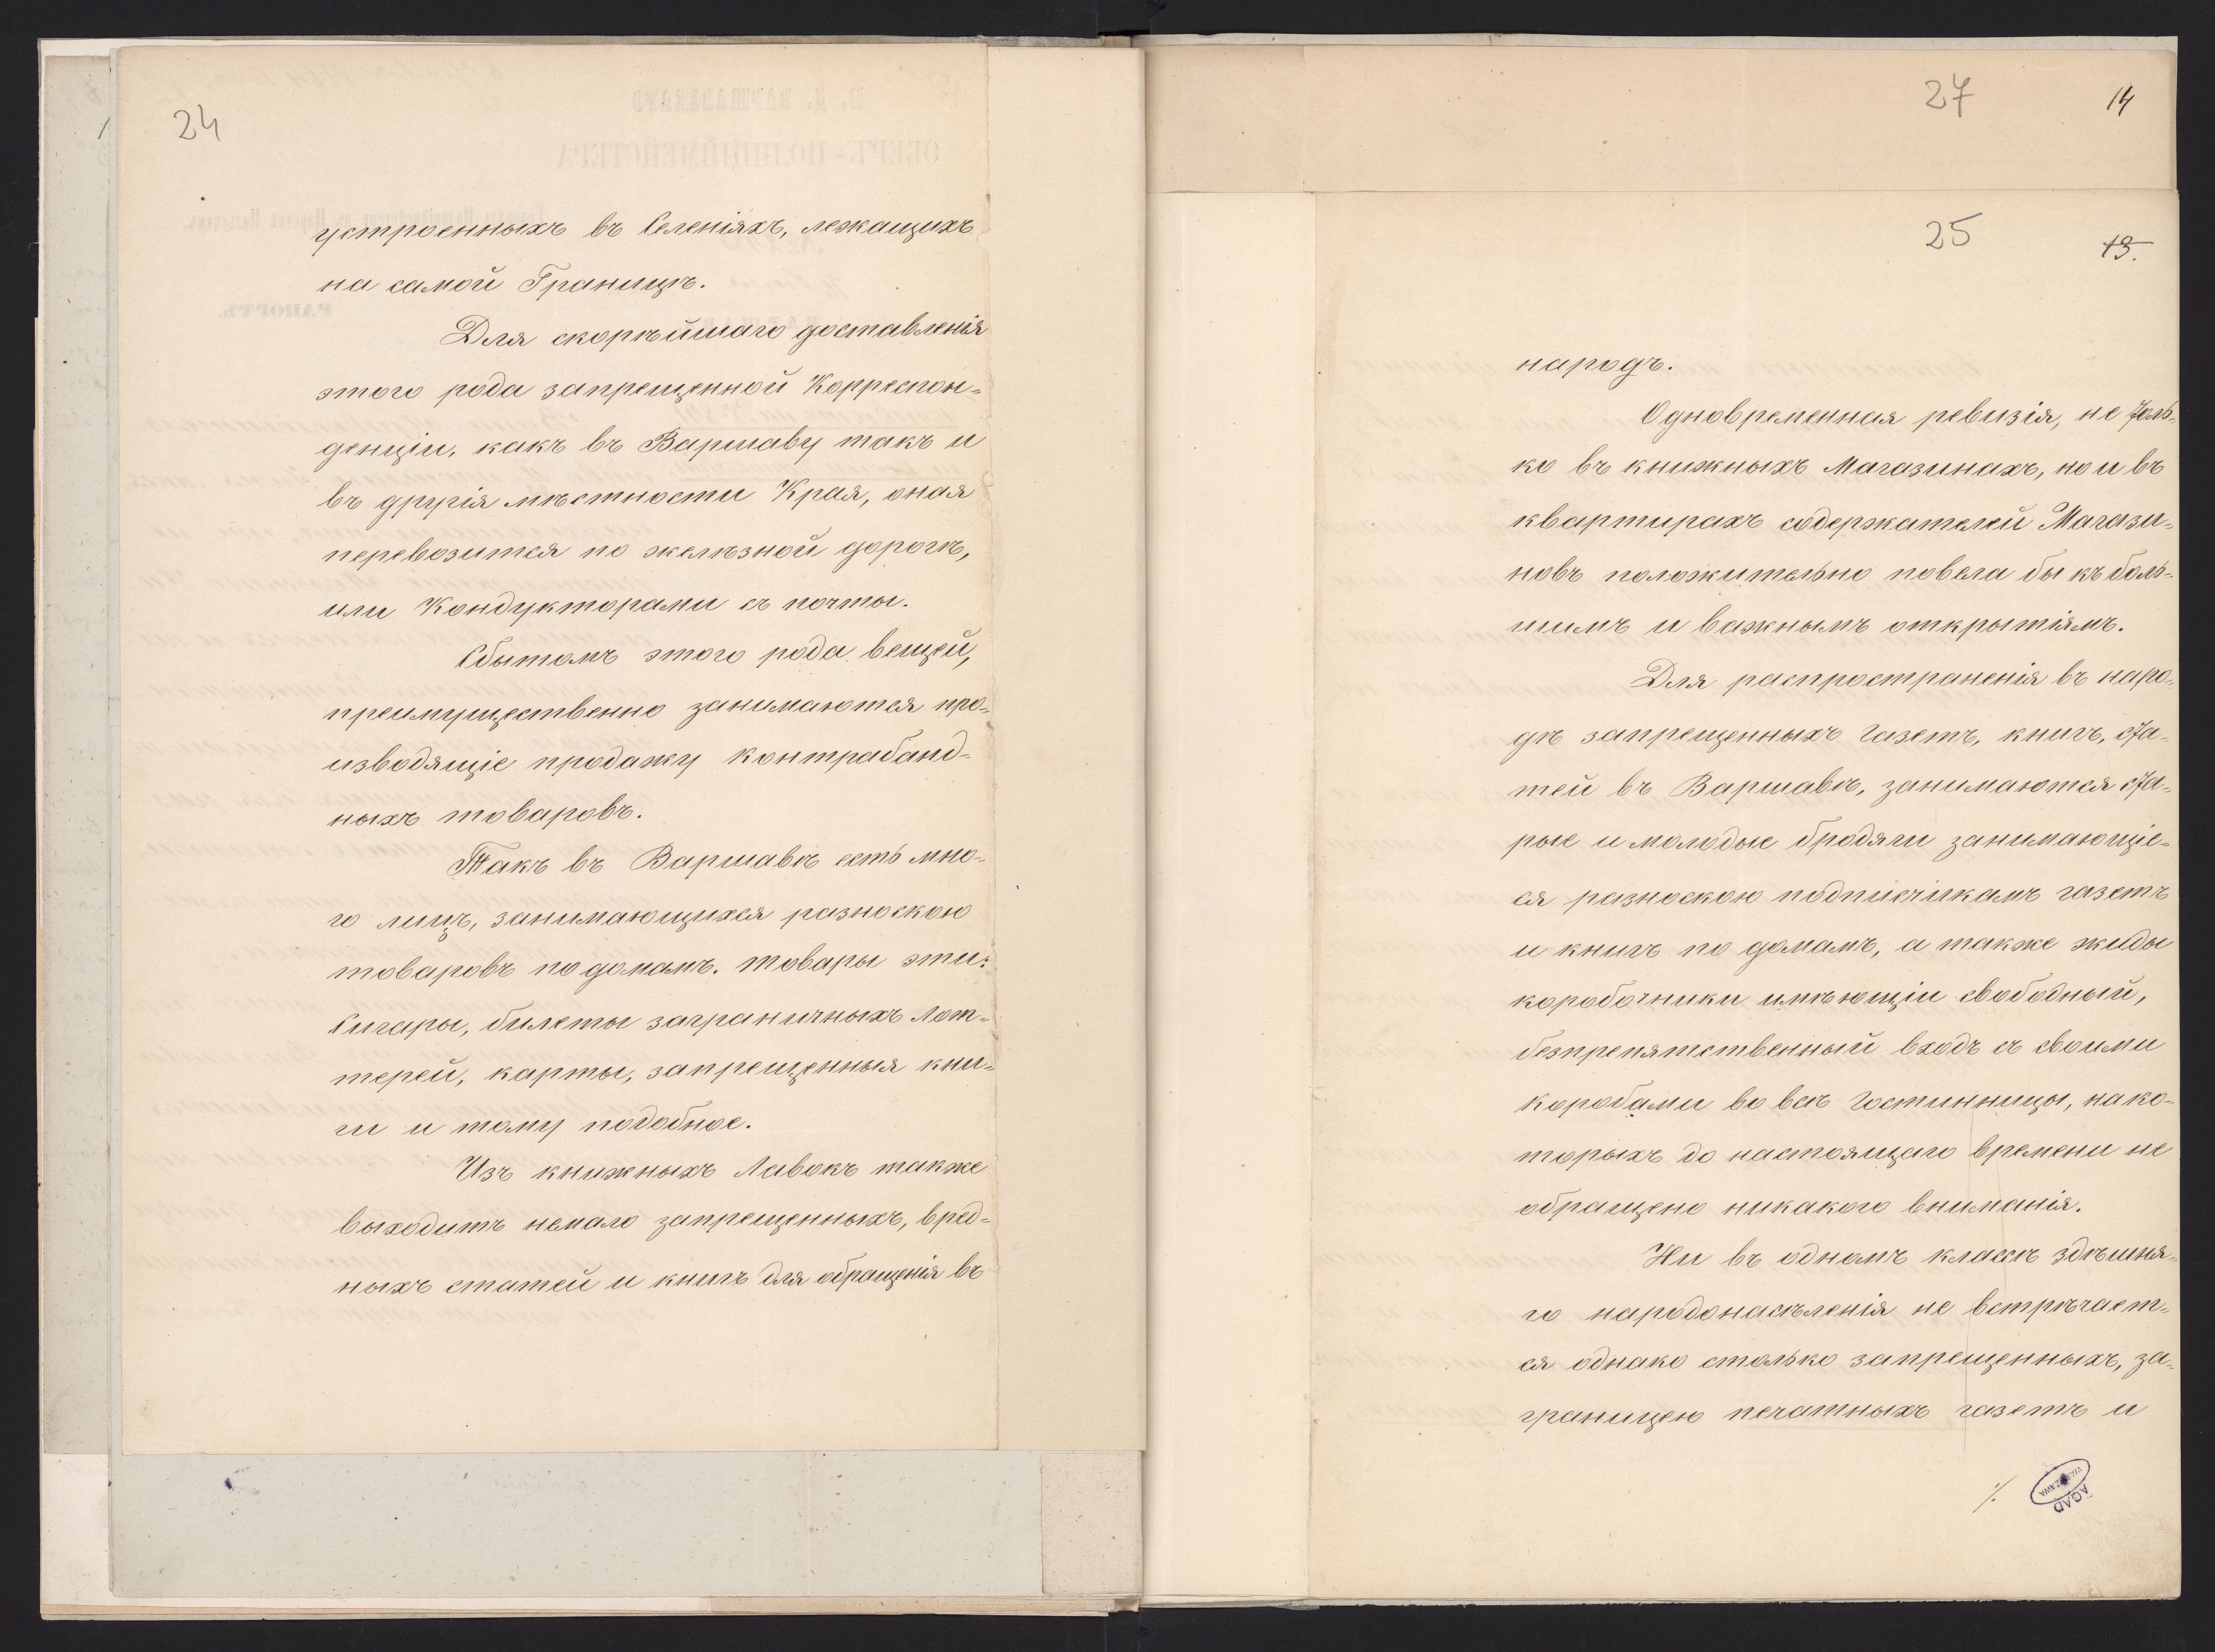 24
устроенныхъ въ Селеніяхъ, лежащихъ
на самой Границѣ.
Для скорѣйшаго доставленія
этого рода запрещенной Корреспон=
денціи, какъ въ Варшаву такъ и
въ другія мѣстности Края, оная
перевозится по желѣзной дорогѣ,
или Кондукторами съ почты.
Сбытомъ этого рода вещей,
преимущественно занимаются про=
изводящіе продажу контрабанд=
ныхъ товаровъ.
Такъ въ Варшавѣ есть мно=
го лицъ, занимающихся разноскою
товаровъ по домамъ. товары эти:
Сигары, билеты заграничныхъ Лот=
терей, карты, запрещенныя кни=
ги и тому подобное.
Изъ книжныхъ Лавокъ также
выходитъ немало запрещенныхъ, вред=
ныхъ статей и книгъ для обращенія въ
27 14
25 13.
народъ.
Одновременная ревизія, не толь=
ко въ книжныхъ Магазинахъ, но и въ
квартирахъ содержателей Магази=
новъ положительно повела бы къ боль=
шимъ и важнымъ открытіямъ.
Для распространенія въ наро=
дѣ запрещенныхъ газетъ, книгъ, ста=
тей въ Варшавѣ, занимаются ста=
рые и молодые бродяги занимающіе=
ся разноскою подписчикамъ газетъ
и книгъ по домамъ, а также жиды
коробочники имѣющіи свободный,
безпрепятственный входъ съ своими
коробами во всѣ Гостинницы, на ко=
торыхъ до настоящаго времени не
обращено никакого вниманія.
Ни въ одномъ классѣ здѣшня=
го народонасѣленія не встрѣчает=
ся однако столько запрещенныхъ, за=
границею печатныхъ газетъ и
./.
AGAD
WARSZAWA